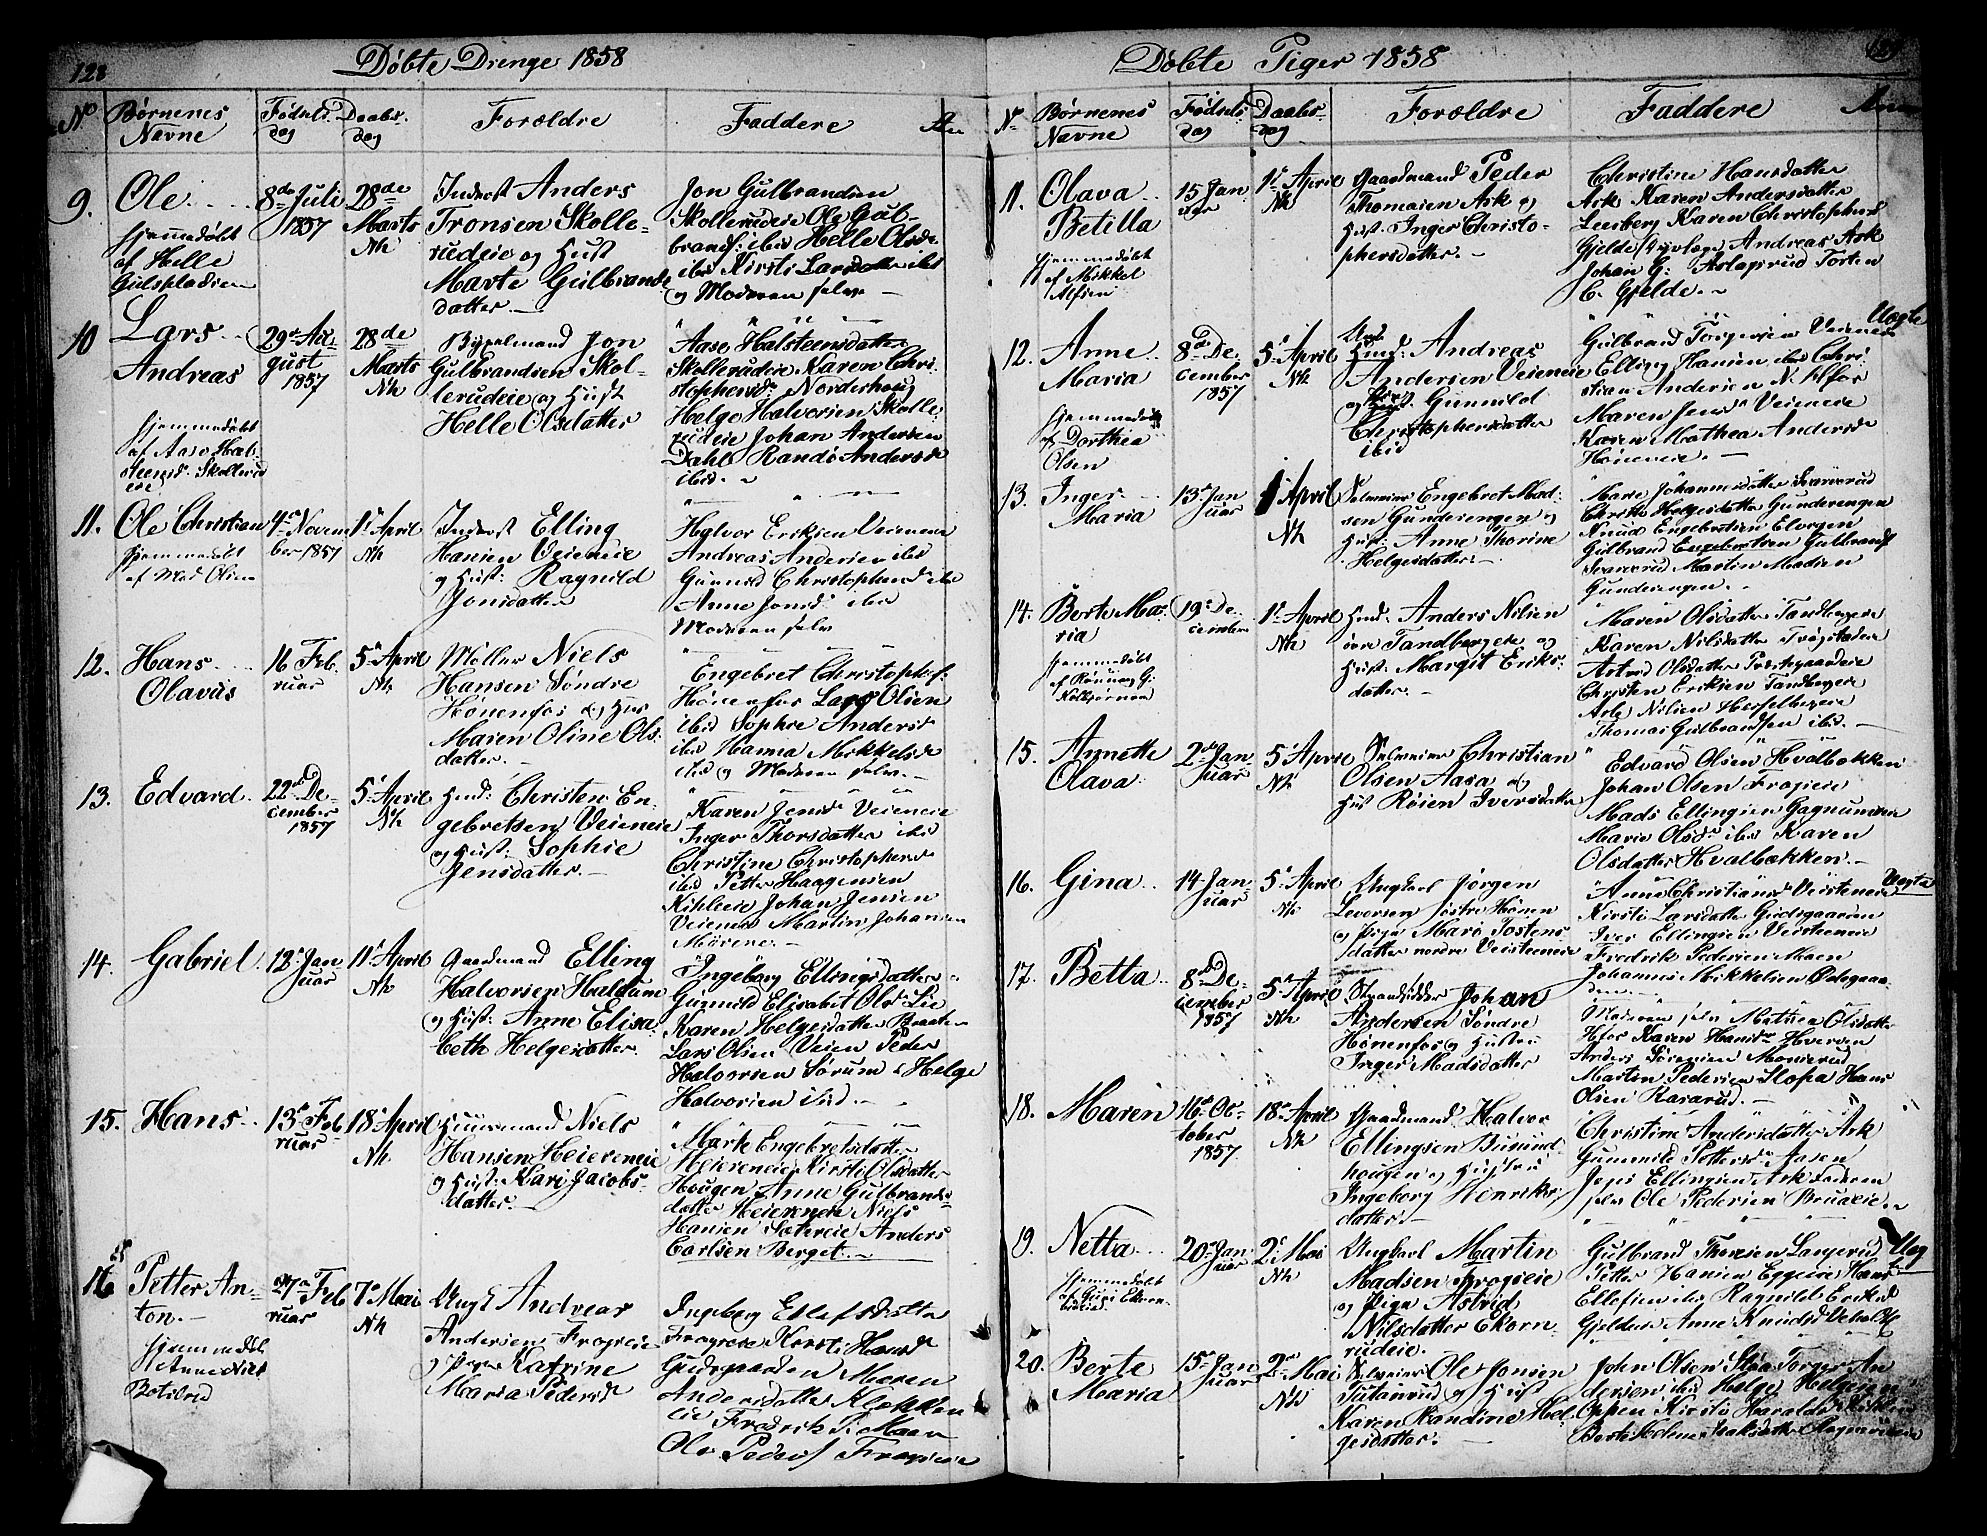 128
Døbte Drenge 1858
No
Børnenes Navne
Fødsels dag
Daabs dag
Forældre
Faddere
An
9.
Ole
hjemmedøbt
af Helle
Gulspladsen
8de Juli
1857
28de
Marts
Nk
Inderst Anders
Tronsen Skolle-
rudeie og Hust
Marte Gulbrands
datter.
Jon Gulbrandsen
Skollerudeie Ole Gul-
brands: ibid Helle Olsdr
ibid Kirsti Larsdatter ibid
og Moderen selv
10
Lars
Andreas
hjemmedøbt
af Aase Hal-
steensd: Skollerud
eie
29de Au-
gust
1857
28de
Marts
Nk
Bygselmand Jon
Gulbrandsen Skol-
lerudeie og Hust
Helle Olsdatter
Aase Halsteensdatter
Skollerudeie Karen Chri-
stophersdr Norderhoug
Helge Halvorsen Skolle-
rudeie Johan Andersen
Dahl Randi Andersdr
ibid.
11.
Ole Christian
hjemmedøbt
af Mad Olsen
4de Novem
ber 1857
11te April
Nk
Inderst Elling
Hansen Veieneie
og Hust: Ragnild
Jonsdatter
Halvor Eriksen Veieneie
Andreas Andersen ibid
Gunnild Christophersd ibid
Anne Jonsd ibid
Moderen selv
12.
Hans
Olavus
16 Feb
ruar
5te April
Nk
Møller Niels
Hansen Søndre
Hønenfos og Hus
Maren Oline Ols-
datter.
Engebret Christophers:
Hønenfos Lars Olsen
ibid Sophie Andersdr
ibid Hanna Mikkelsdr
ibid og Moderen selv.
13.
Edvard
22de De-
cember
1857
5te April
Nk
Hmd: Christen En-
gebretsen Veieneie
og Hust: Sophie
Jensdatter.
Karen Jensdr Veieneie
Inger Thorsdatter ibid
Christine Christophersdr
ibid Petter Haagensen
Kihleie Johan Jensen
Veieneie Martin Johansen
Moeneie.
14.
Gabriel
12te Jan
uar
11te April
Nk
Gaardmand Elling
Halvorsen Haldum
og Hust: Anne Elisa-
beth Helgesdatter.
Ingeborg Ellingsdatter
Gunnild Elisabet Olsdr Lie
Karen Helgesdatter Braaten
Lars Olsen Veien Peder
Halvorsen Sørum & Helge
Halvorsen ibid.
15.
Hans
13de Feb
ruar
18de April
Nk
Huusmand Niels
Hansen Heiereneie
og Hust: Kari Jacobs-
datter.
Marte Engebretsdatter
Heiereneie Kirsti Olsdatter
Hougen Anne Gulbrands-
datter Heiereneie Niels
Hansen Sætereie Anders
Carlsen Berget.
16
Petter An-
ton.
hjemmedøbt
af Anne Niels
Botilrud
7de Feb
ruar
7de Mai
Nk
Ungk Andreas
Andersen Frogeie
og Pige Katrine
Maria Pedersdr
Ingeborg Ellefsdatter
Frogeie Kirsti Hansdr
Gudsgaarden Maren
Andersdatter Klokken
eie Fredrik P. Moen
Ole Peders Frogeie
129
Døbte Piger 1858
N
Børnenes Navne
Fødsels dag
Daabs dag
Forældre
Faddere
11.
Olava
Betilla
hjemmedøbt
af Mikkel
Alfsen
15 Jan
uar
1ste April
Nk
Gaardmand Peder
Thomasen Ask og
Hust: Inger Christo-
phersdatter.
Christine Hansdatter
Ask Karen Andersdatter
Leesberg Karen Christophersd
Gjelde Andreas Ask
Johan G: Aslagsrud Torsten
C. Gjelde.
12.
Anne
Maria
hjemmedøbt
af Dorthea
Olsen
8de De-
cember
1857
5te April
Nk
Andreas
Andersen Veieneie
og Gunnild
Christophersdatter
ibid
Uægte
Gulbrand Torgersen Veieneie
Elling Hansen ibid Chri-
stian Andersen N. Hfos
Maren Jensdr Veieneie
Karen Mathea Andersdr
Høneneie.
13.
Inger
Maria
13de Jan
uar
11 April
Nk
Selveier Engebret Mad-
sen Gundersengen og
Hust: Anne Thorine
Helgesdatter.
Marie Johannesdatter Svarverud
Christi Helgesdatter Gundersengen
Knud Engebretsen Elvegen
Gulbrand Engebretsen Gulbrands
Svarverud Martin Madsen
Gundersengen.
14.
Berte Ma-
ria
hjemmedøbt
af Rønnaug G:
Kolbjørnsen
19de De-
cember
11te April
Nk
Hmd: Anders Nilsen
øvre Tandbergeie og
Hust: Margit Eriks-
datter.
Maren Olsdatter Tandbergeie
Karen Nilsdatter Trøgstadeie
Astrid Olsdatter Prestegaardeie
Christen Eriksen Tandbergeie
Arle Nilsen Hesselbergeie
Thomas Gulbrandsen ibid.
15.
Annette
Olava
2den Jan
uar
5te April
Nk
Selveier Christian
Olsen Aasa og
Hust Røien Iversdatter
Edvard Olsen Hvalbækken
Johan Olsen Frogeie
Mads Ellingsen Gagnumeie
Marie Olsdr ibid Karen
Olsdatter Hvalbækken.
16.
Gina
14 Jan
uar
5te April
Nk
Ungkarl Jørgen
Levorsen Østre Hønen
og Pige Mari Tostens
datter nordre Veisteneie
Uægte
Anne Christiansdr Veisteneie
Kirsti Larsdatter Gudsgaarden
Iver Ellingsen Veisteneie
Fredrik Pedersen Moen
Johannes Mikkelsen Ødegaar
den
17.
Betta
8de De-
cember
1857
5te April
Nk
Strandsidder Johan
Andersen Søndre
Hønenfos og Hustru
Inger Madsdatter
Moderen selv Mathea Olsdatter
Hfos Karen Hansdtr Hverven
Anders Sørensen Monserud
Martin Pedersen Hofsa Hans
Olsen Karsrud.
18.
Maren
16de Oc-
tober
1857
18de April
Nk
Gaardmand Halvor
Ellingsen Busund-
hougen og Hustru
Ingeborg Henriks-
datter.
Christine Andersdatter Ask
Gunnild Pettersdr Aasen
Jens Ellingsen Ask Faderen
selv Ole Pedersen Bruaeie.
19.
Netta
hjemmedøbt
af Guri Ekorn-
rudeie
20de Jan
uar
2den Mai
Nk
Ungkarl Martin
Madsen Frogieie
og Pige Astrid
Nilsdatter Ekorn-
rudeie.
Uægte
Gulbrand Thoresen Langerud
Petter Hansen Eggeeie Hans
Ellefsen ibid Ragnild Eriksd
Gjelden Anne Knudsd
20.
Berte
Maria
15de Jan
uar
2den Mai
Nk
Selveier Ole Jonsen
Tutanrud og Hust
Karen Randine Hel-
gesdatter.
John Olsen Stoa Torger An
dersen ibid Helge Helgesen
Oppen Kirsti Haraldsd
Berte Helene Isaksdatter